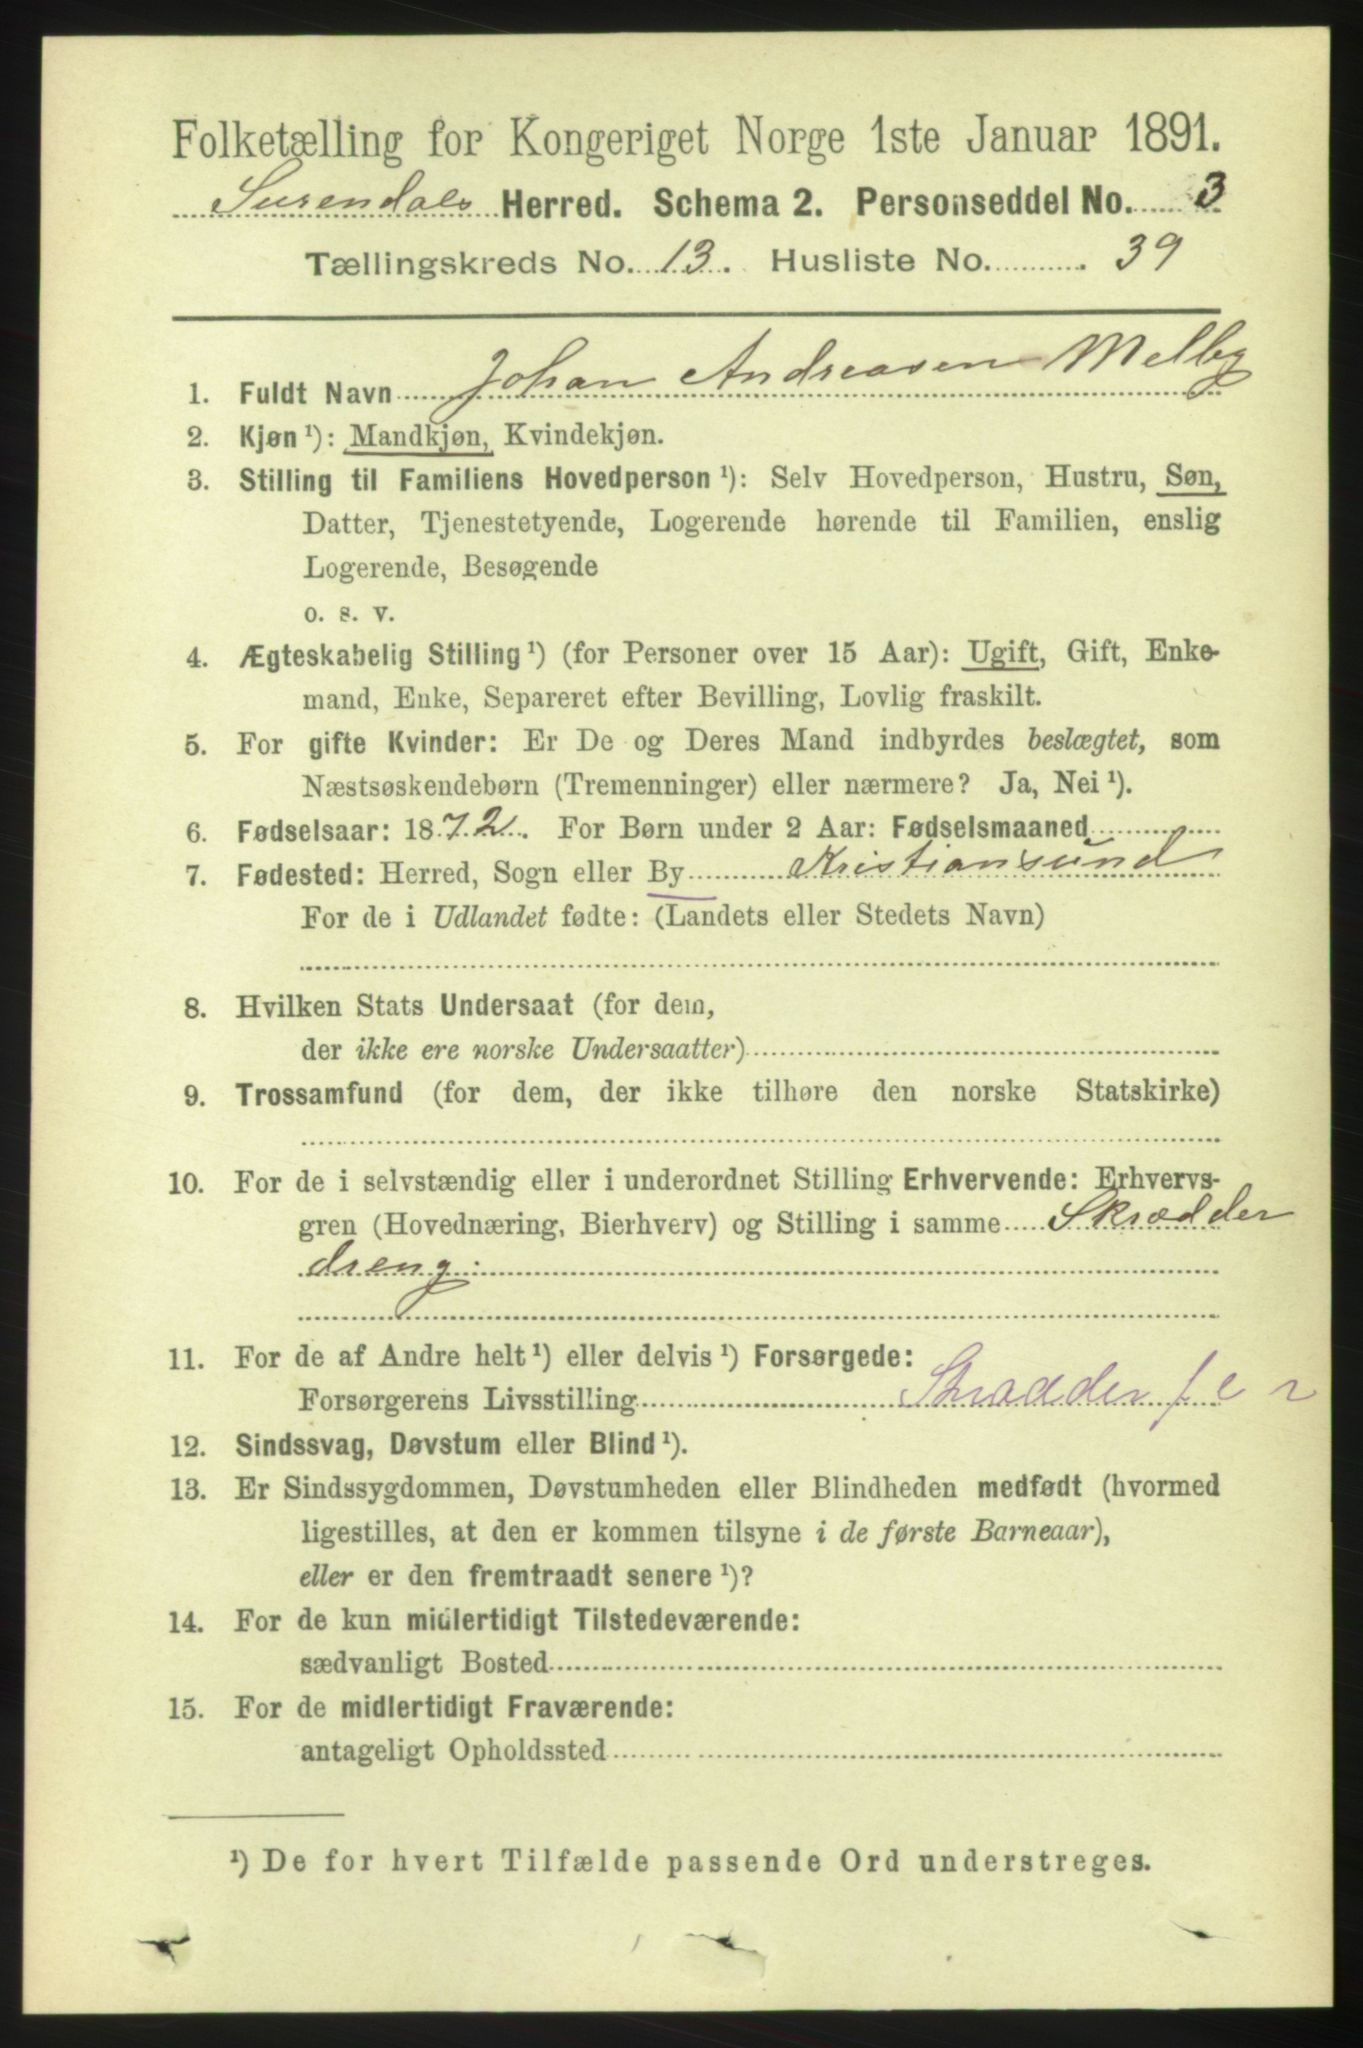 Folketælling for Kongeriget Norge 1ste Januar 1891.
Surendals Herred. Schema 2. Personseddel No. 3
Tællingskreds No. 13. Husliste No. 39
1. Fuldt Navn Johan Andreasen Melby
2. Kjøn ¹): Mandkjøn, Kvindekjøn.
3. Stilling til Familiens Hovedperson ¹): Selv Hovedperson, Hustru, Søn,
Datter, Tjenestetyende, Logerende hørende til Familien, enslig
Logerende, Besøgende
o. s. v.
4. Ægteskabelig Stilling ¹) (for Personer over 15 Aar): Ugift, Gift, Enke-
mand, Enke, Separeret efter Bevilling, Lovlig fraskilt.
5. For gifte Kvinder: Er De og Deres Mand indbyrdes beslægtet, som
Næstsøskendebørn (Tremenninger) eller nærmere? Ja, Nei ¹).
6. Fødselsaar: 1872. For Børn under 2 Aar: Fødselsmaaned
7. Fødested: Herred, Sogn eller By Kristiansund
For de i Udlandet fødte: (Landets eller Stedets Navn)
8. Hvilken Stats Undersaat (for dem,
der ikke ere norske Undersaatter)
9. Trossamfund (for dem, der ikke tilhøre den norske Statskirke)
10. For de i selvstændig eller i underordnet Stilling Erhvervende: Erhvervs-
gren (Hovednæring, Bierhverv) og Stilling i samme Skrædder
dreng.
11. For de af Andre helt ¹) eller delvis ¹) Forsørgede:
Forsørgerens Livsstilling
12. Sindssvag, Døvstum eller Blind ¹).
13. Er Sindssygdommen, Døvstumheden eller Blindheden medfødt (hvormed
ligestilles, at den er kommen tilsyne i de første Barneaar),
eller er den fremtraadt senere ¹)?
14. For de kun midlertidigt Tilstedeværende:
sædvanligt Bosted
15. For de midlertidigt Fraværende:
antageligt Opholdssted
¹) De for hvert Tilfælde passende Ord understreges.